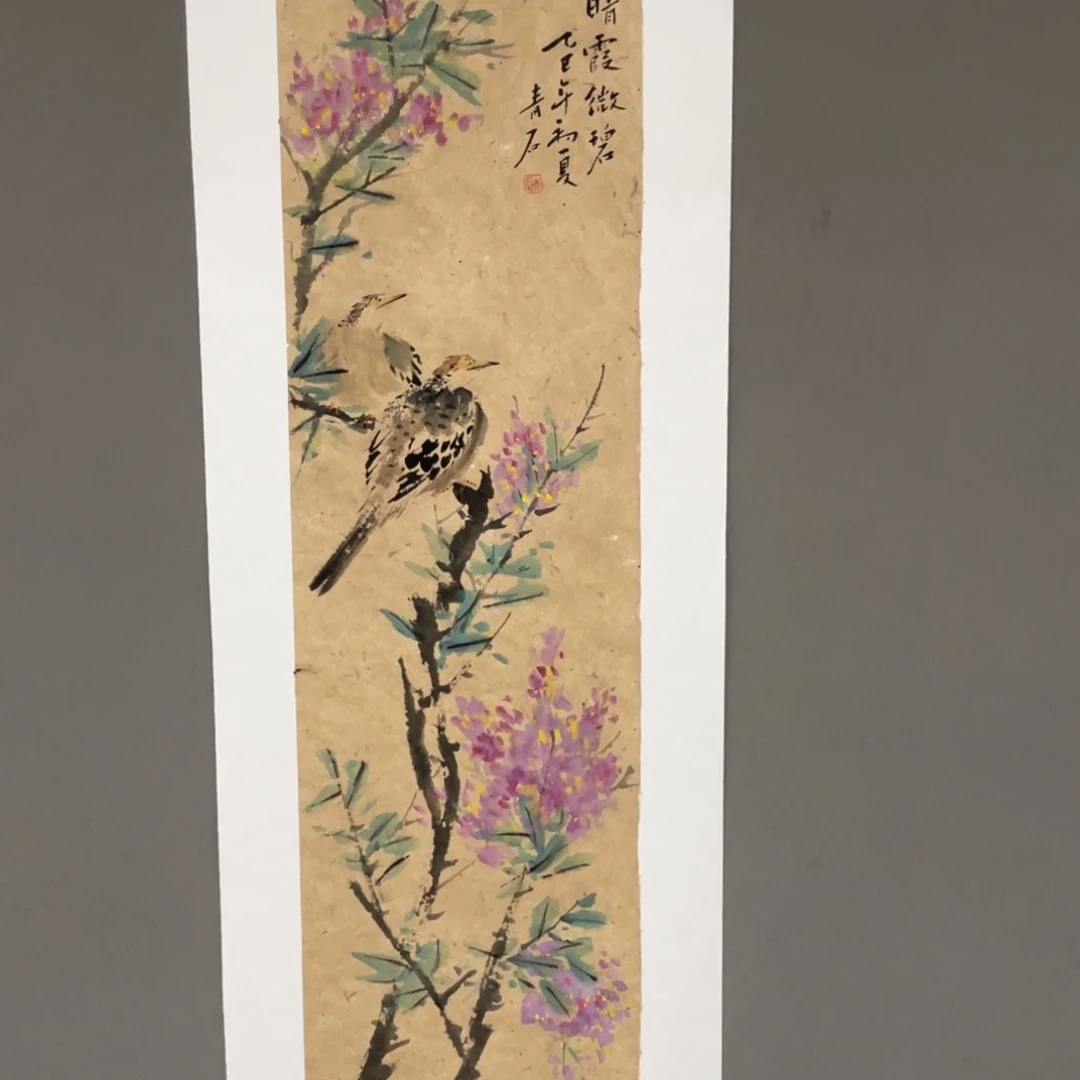 晴霞微碧
乙巳年初夏
青石